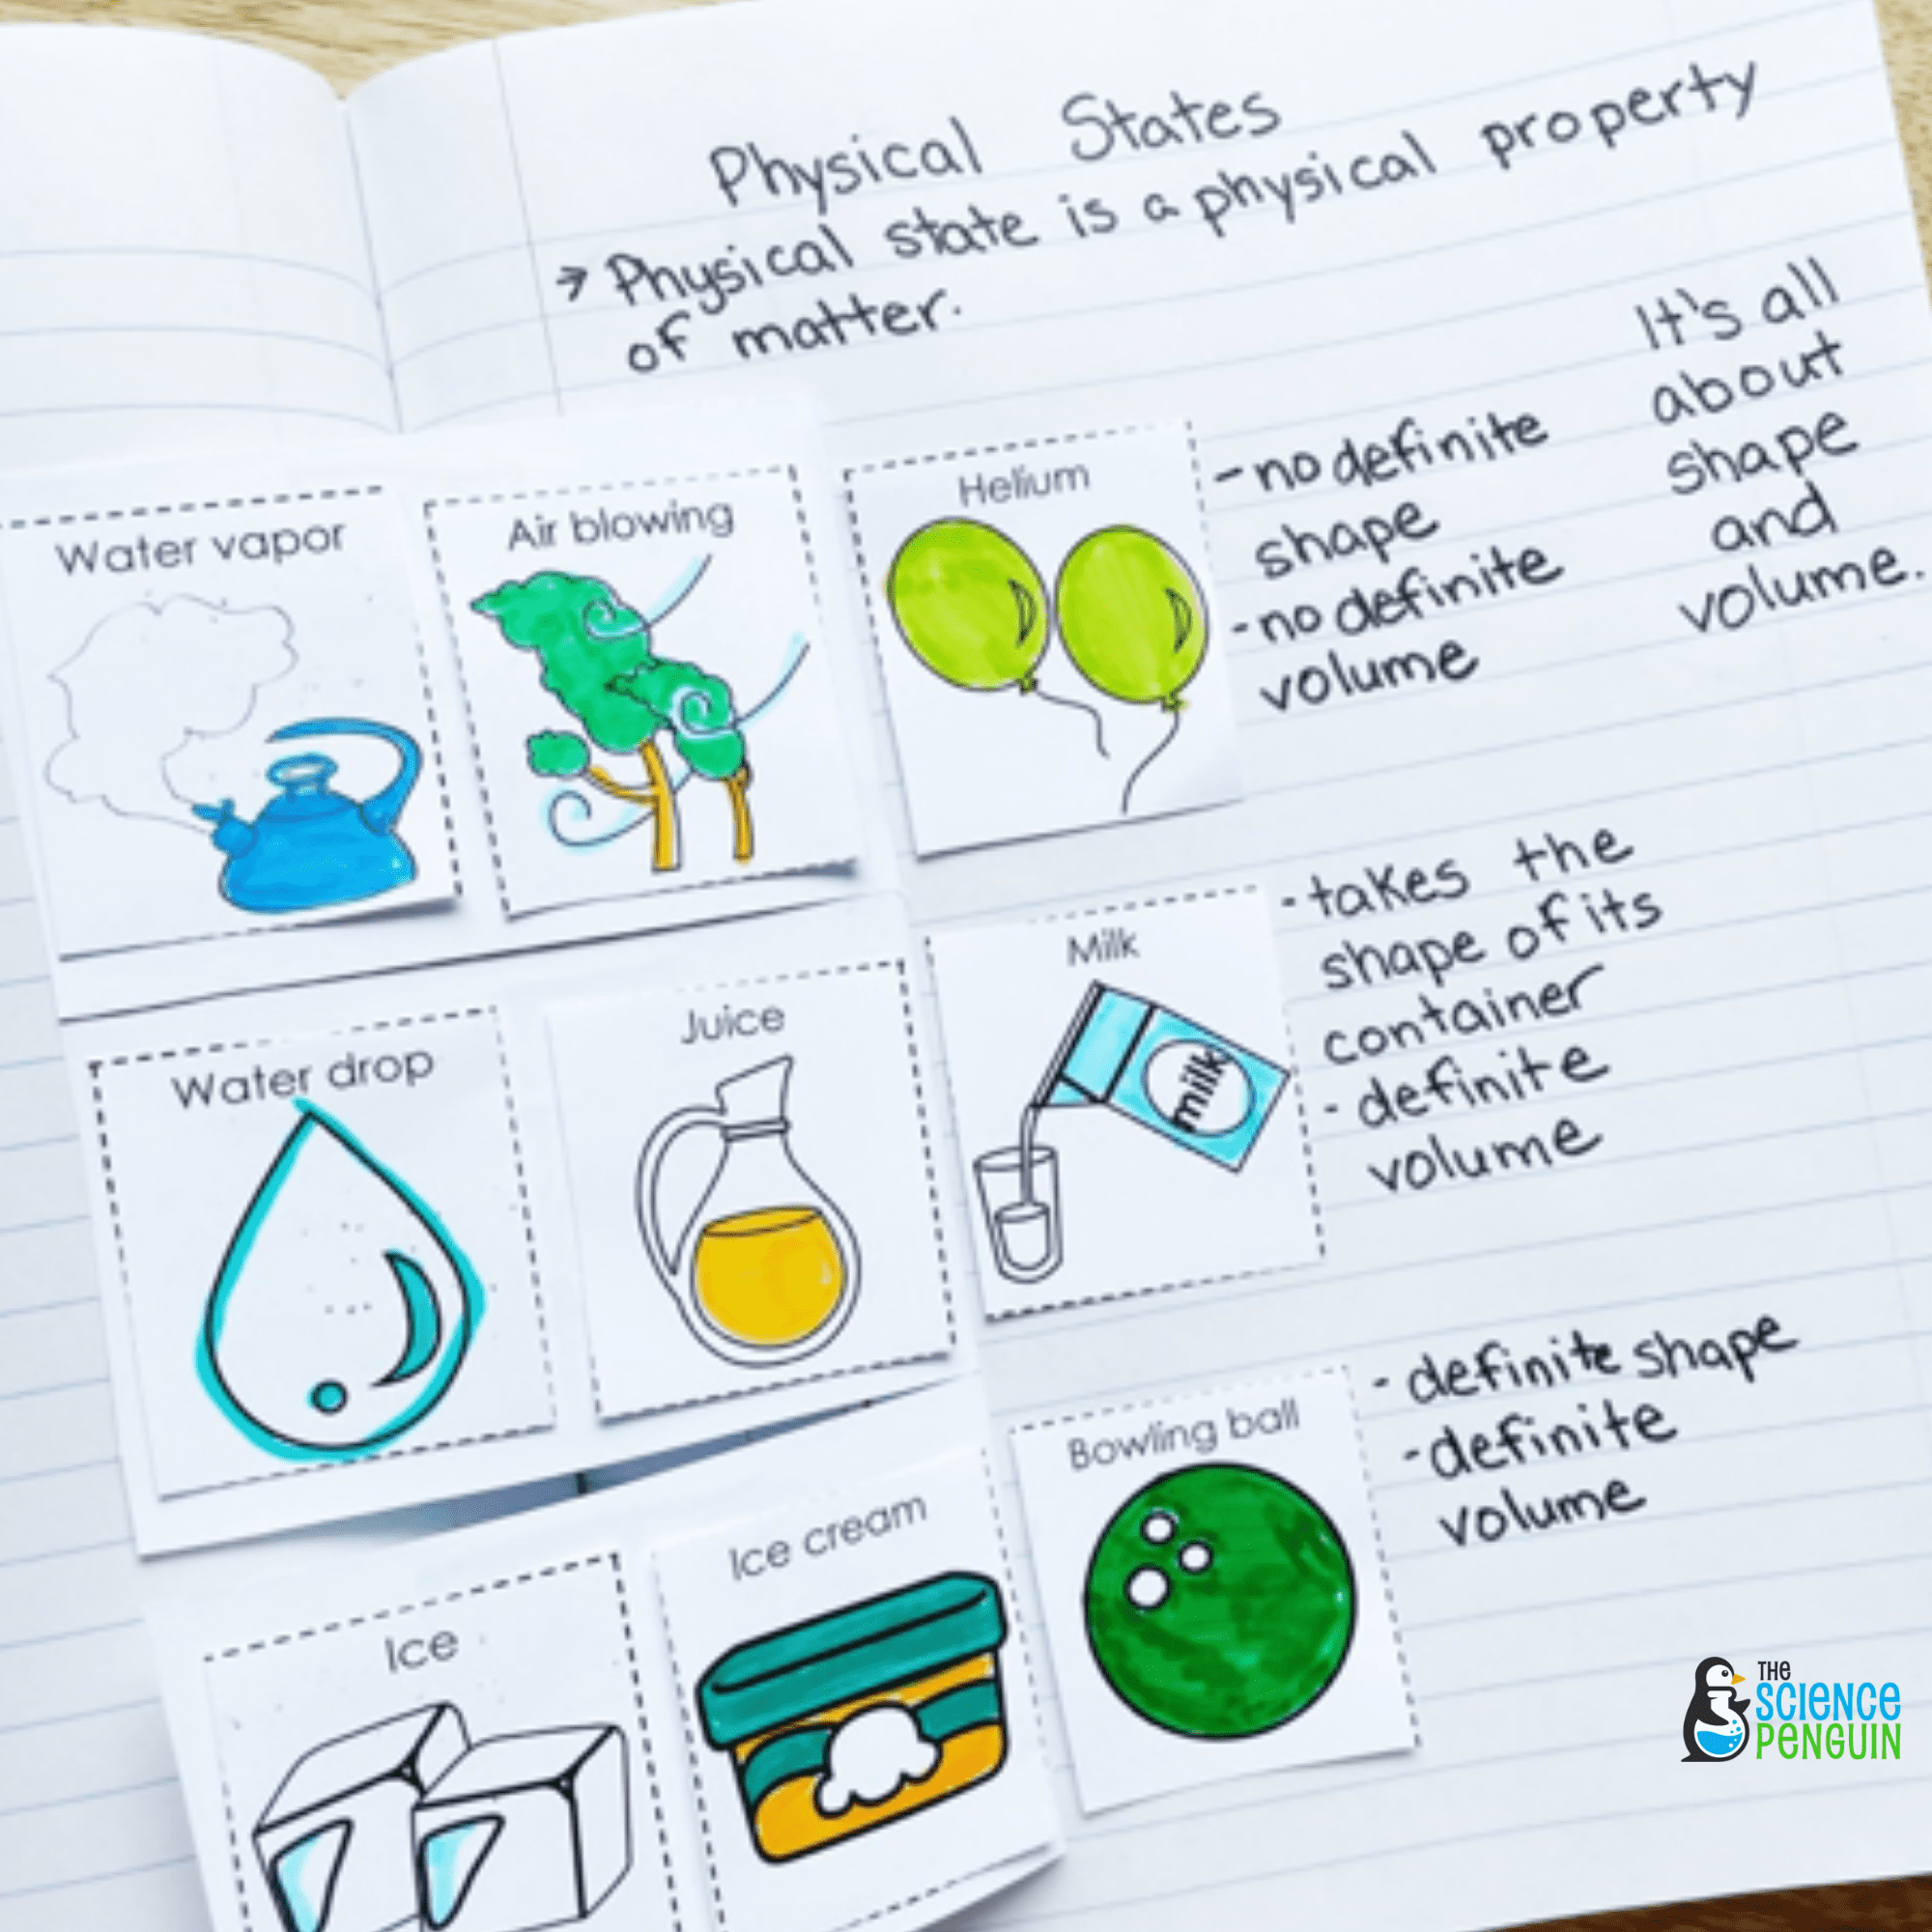 Physical States
→ Physical state is a physical property
of matter.
It's all
about
shape
and
volume.
Water vapor
Air blowing
Helium
- no definite
shape
- no definite
volume
Water drop
Juice
Milk
milk
- takes the
shape of its
container
- definite
volume
Ice
Ice cream
Bowling ball
- definite shape
- definite
volume
THE
SCIENCE
PENGUIN